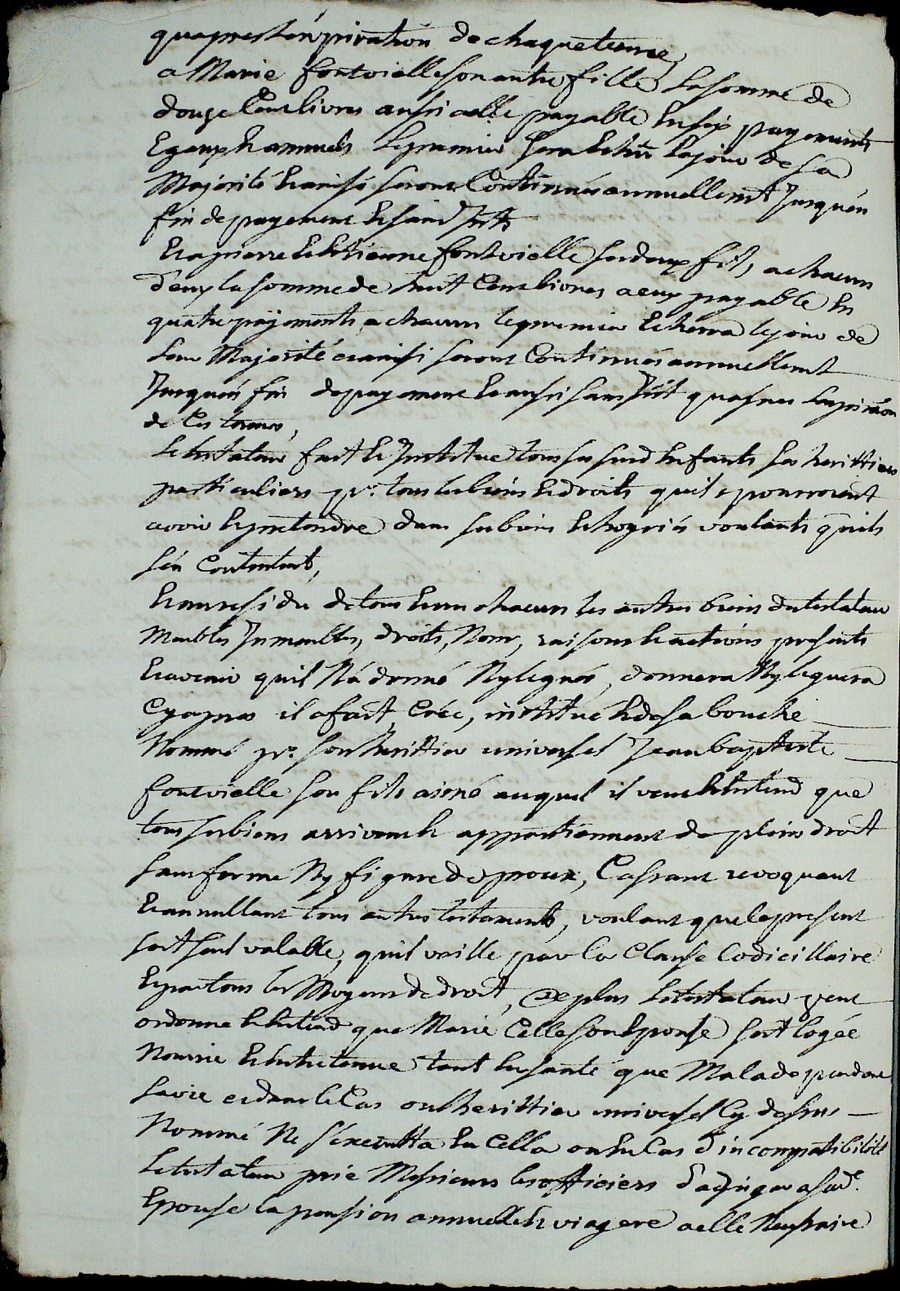 qu'apres l'expiration de chaque terme,
a Marie fontvielle son autre fille la somme de
douze Cens livres aussi a elle payable en six payements
Egeaux & annuels le premier sera & échu le jour de sa
Majorité & ainsi seront Continués annuellemt Jusques en
fin de payement & sans Intt
Et a pierre & Etienne fontvielle ses deux fils, a chacun
d'eux la somme de huit Cens livres a eux payable En
quatre payements, a chacun le premier Echerra le jour de
leur Majorité & ainsi seront Continués annuellemt
Jusques en fin de payement & aussi sans Intt qu'apres l'expiration
de Ces termes,
le testateur fait & Institue tous ses susd Enfants ses herittiers
particuliers pr. tous les biens & droits qu'ils pourroient
avoir & pretendre dans ses biens & hoyries voulants qu'ils
s'en Contentent,
Et au residu de tous & un chacuns les autres biens du testateur
Meubles Inmeubles, droits, Noms, raisons & actions presents
& avenir quil N'a donné Ny legués, donnera Ny leguera
Cy apres il a fait, Créé, institué & de sa bouche
Nommé pr. son herittier universel Jean baptiste
fontvielle son fils ainé auquel il veut & Entend que
tous ses biens arrivent & appartiennent de plein droit
sans forme Ny figure de proces, Cassant revoquant
& annullant tous autres testaments, voulant que le present
soit seul valable, quil vaille par la Clause Codicillaire
& par tous les Moyens de droit, De plus le testateur veut
ordonne & Entend que Marie Celle son Epouse soit logée
Nourrie & Entretenue tant En santé que Malade pendant
sa vie et dans le Cas ou l'herittier universel Cy dessus
Nommé Ne s'executta En Cella ou En Cas d'incompatibilité
le testateur prie Messieurs les officiers d'adjuger a sade
Epouse la pension annuelle & viagere a elle Necessaire